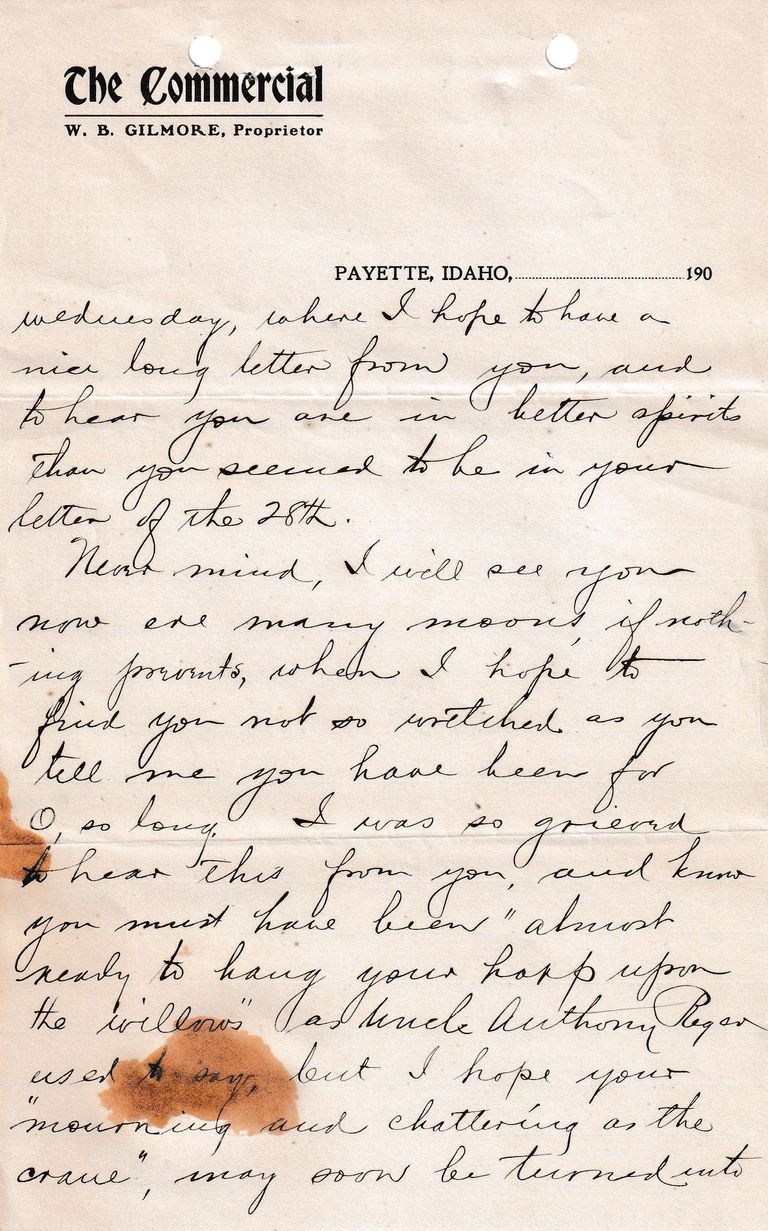 The Commercial
W. B. GILMORE, Proprietor
PAYETTE, IDAHO,..............................190
wednesday, where I hope to have a
nice long letter from you, and
to hear you are in better spirits
than you seemed to be in your
letter of the 28th.
Never mind, I will see you
now ere many moons, if noth-
-ing prevents, when I hope to
find you not so wretched as you
tell me you have been for
O, so long. I was so grieved
to hear this from you, and know
you must have been "almost
ready to hang your harp upon
the willows" as Uncle Anthony
used to say, but I hope your
"mourning and chattering as the
crane", may soon be turned into